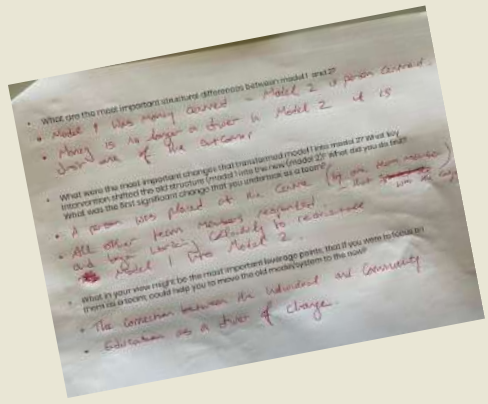 What are the most important structural differences between model 1 and 2?
Model 1 was money centred - Model 2 is person centred.
Money is no longer a driver in Model 2 it is
just one of the outcomes
What were the most important changes that transformed model 1 into model 2? What key
intervention shifted the old structure (model 1) into the new (model 2)? What did you do first?
What was the first significant change that you undertook as a team?
A person was placed at the centre (by one team member)
All other team members responded
and began working collectively to reorientate
Model 1 into Model 2.
What in your view might be the most important leverage points, that if you were to focus on
them as a team, could help you to move the old model/system to the new?
The connection between the individual and community
Education as a driver of change.